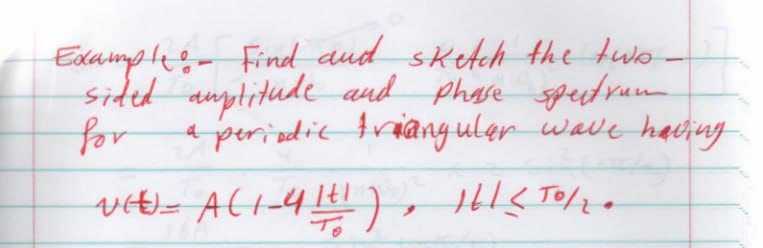 Example:- Find and sketch the two-
sided amplitude and phase spectrum
for a periodic triangular wave having
v(t) = A(1-4 |t|/T₀), |t| < T₀/2.